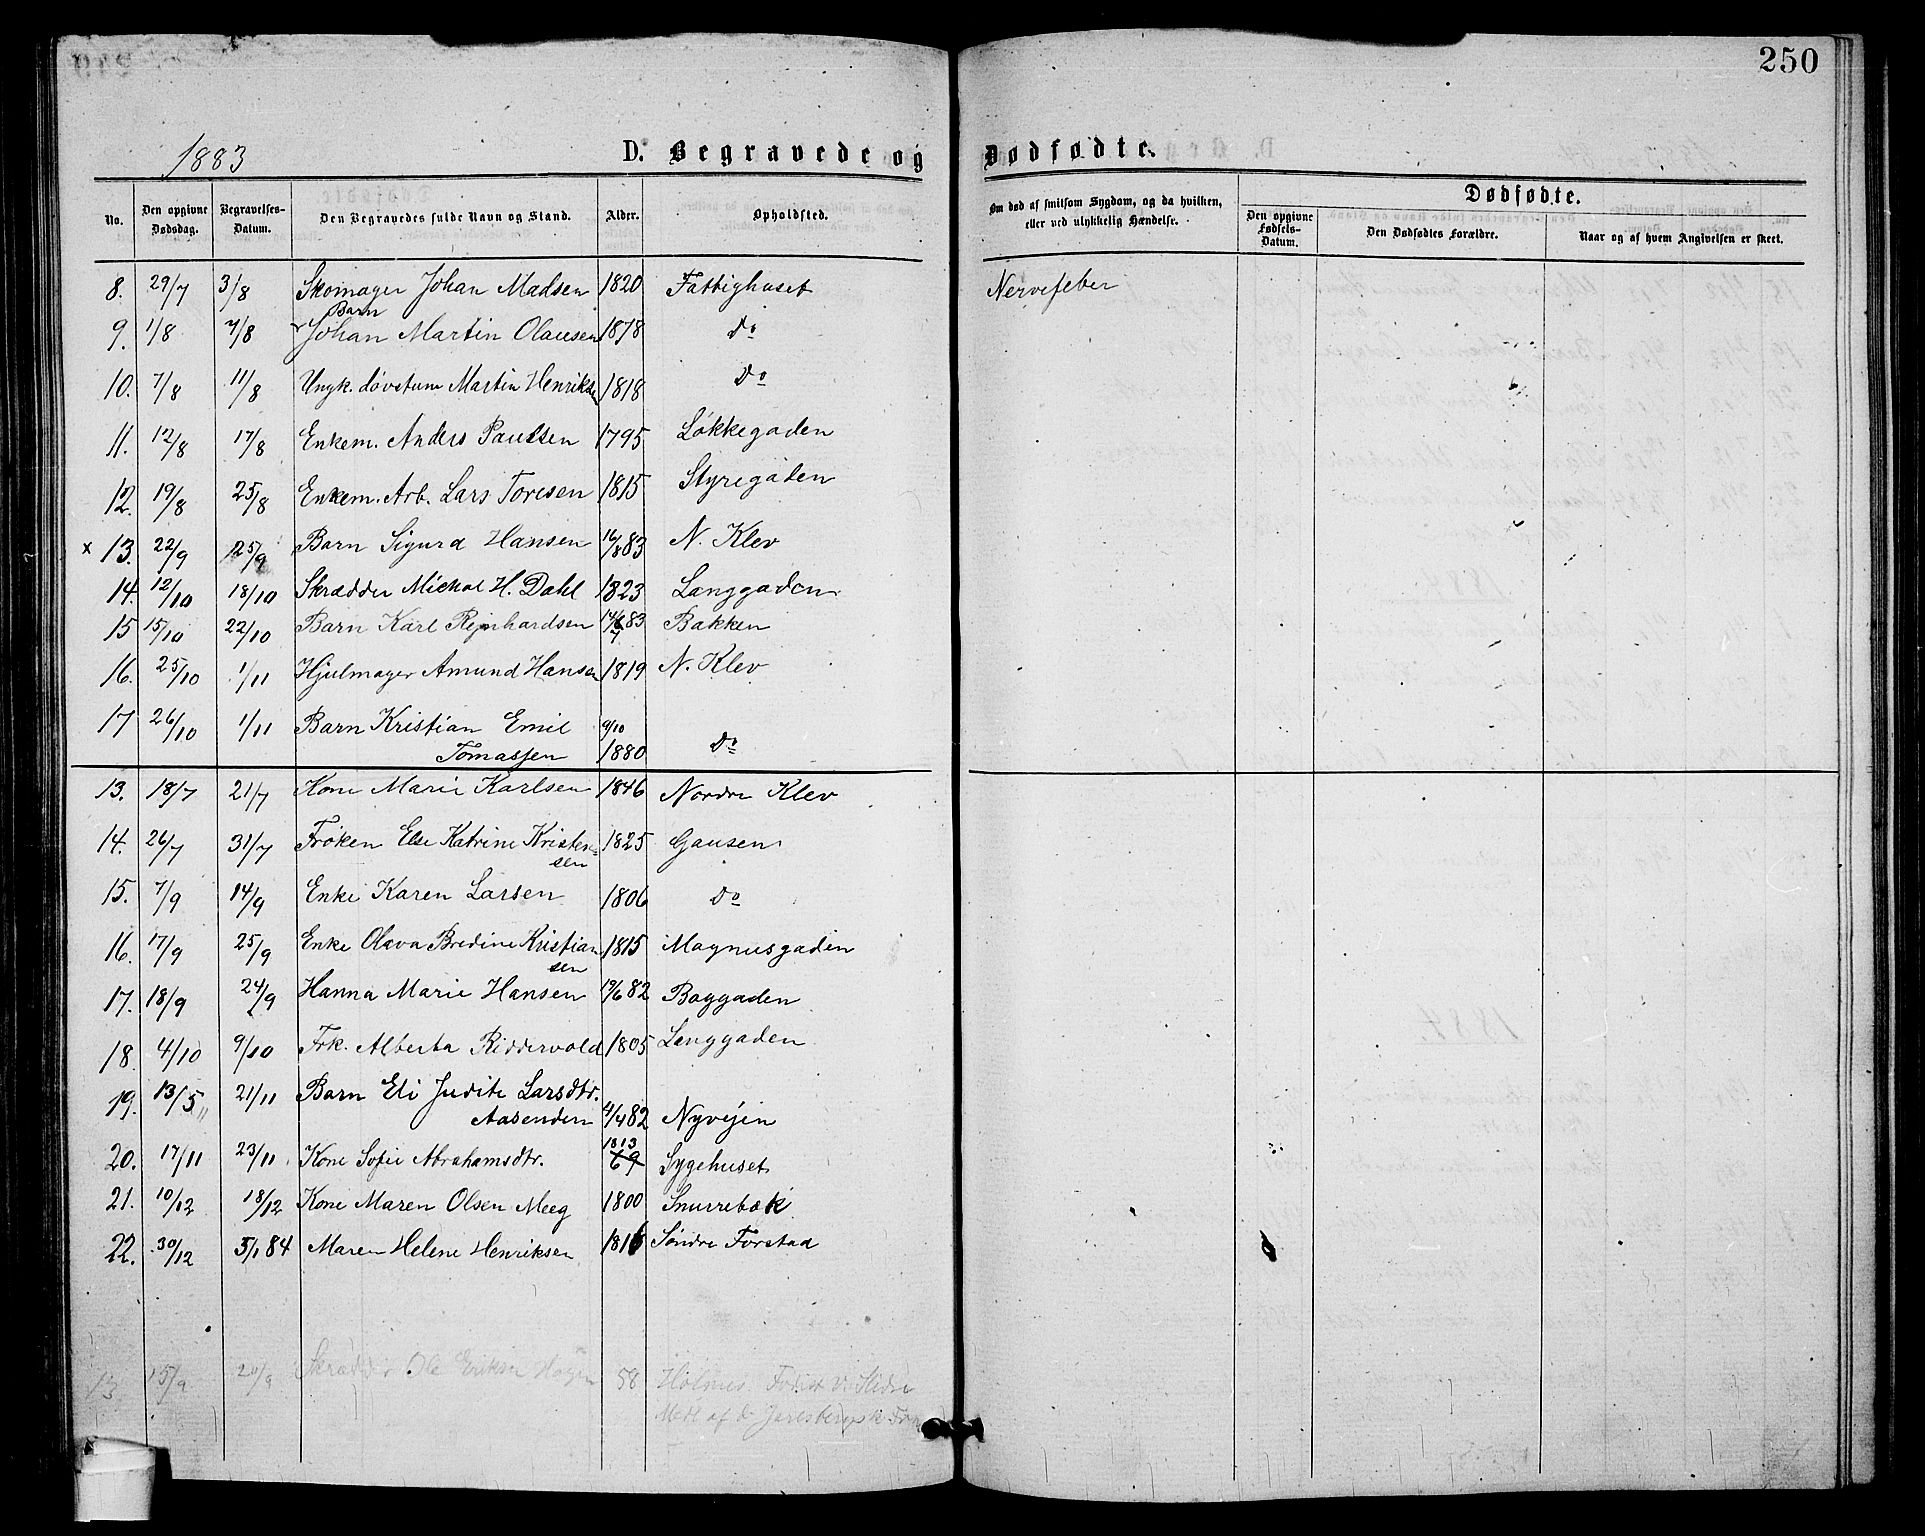 250
1883 D. Begravede og Dødfødte.
No. Den opgivne Dødsdag. Begravelses-Datum. Den Begravedes fulde Navn og Stand. Alder. Opholdsted. Om død af smitsom Sygdom, og da hvilken, eller ved ulykkelig Hændelse. Dødfødte. Den opgivne Fødsels-Datum. Den Dødfødtes Forældre. Naar og af hvem Angivelsen er skeet.
8. 29/7 3/8 Skomager Johan Madsen 1820 Fattighuset Nervefeber
Barn
9. 1/8 7/8 Johan Martin Olausen 1878 Do
10. 7/8 11/8 Ungk. døvstum Martin Henriksen 1818 Do
11. 12/8 17/8 Enkem. Anders Paulsen 1795 Løkkegaden
12. 19/8 25/8 Enkem. Arb. Lars Toresen 1815 Styregaden
x 13. 22/9 25/9 Barn Sigurd Hansen 16/8 83 N. Klev
14. 12/10 18/10 Skrædder Michal H. Dahl 1823 Langgaden
15 15/10 22/10 Barn Karl Reinhardsen 83 Bakken
16. 25/10 1/11 Hjulmager Amund Hansen 1819 N. Klev
17 26/10 1/11 Barn Kristian Emil 9/10
Tomassen 1880 Do
13. 18/7 21/7 Kone Marie Karlsen 1846 Nordre Klev
14. 26/7 31/7 Frøken Else Katrine Kristen= 1825 Gausen
sen
15. 7/9 14/9 Enke Karen Larsen 1806 Do
16. 17/9 25/9 Enke Olava Bredine Kristian 1815 Magnusgaden
sen
17. 18/9 24/9 Hanna Marie Hansen 19/6 82 Baggaden
18. 4/10 9/10 Frk. Alberta Riddervold 1805 Langgaden
19. 13/5 21/11 Barn Eli Judite Larsdtr.
Aasenden 4/4 82 Nyvejen
1813
20. 17/11 23/11 Kone Sofie Abrahamsdtr. 69 Sygehuset
21. 10/12 18/12 Kone Maren Olsen Meeg 1800 Snurrebæk
22. 30/12 5/1 84 Maren Helene Henriksen 1816 Søndre Forstad
13 15/9 20/9 Skrædder Ole Eriksen Hagen 58 Holmes. Født V. Slidre
Medl af d. Jarlsbergsk Fri